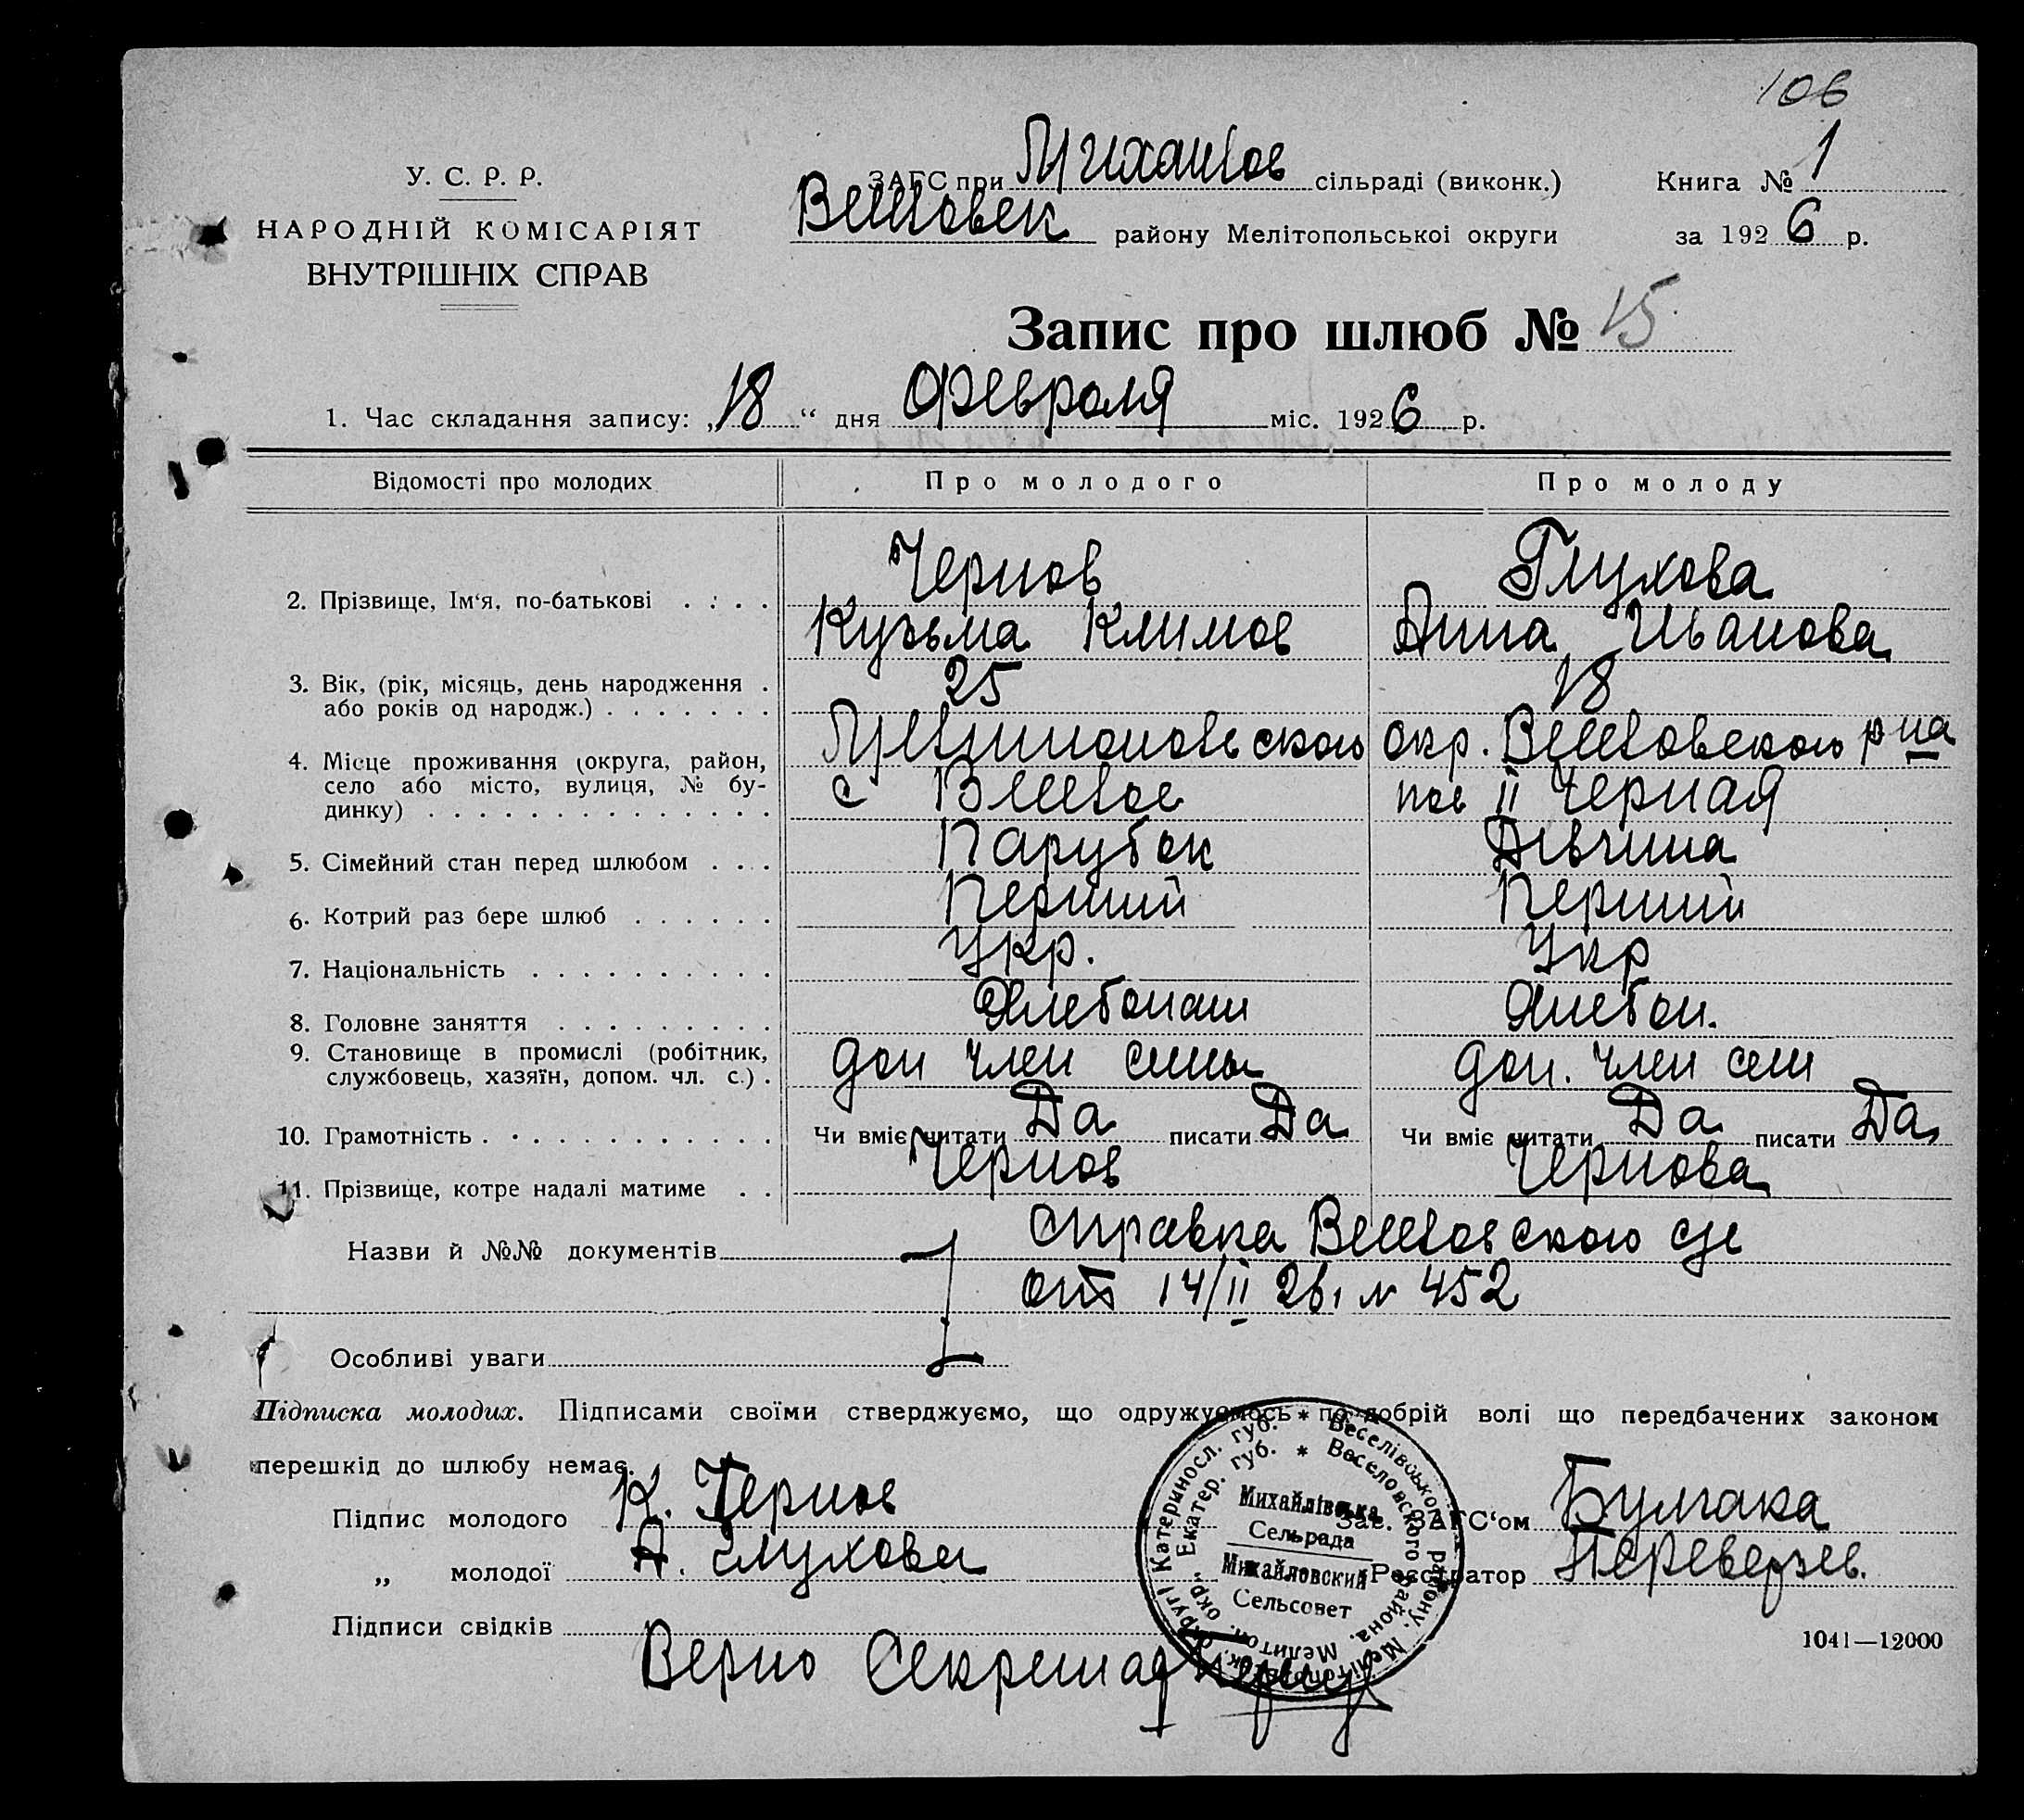 106
У. С. Р. Р.
НАРОДНІЙ КОМІСАРІЯТ
ВНУТРІШНІХ СПРАВ
ЗАГС при Михайлов сільраді (виконк.)
Книга № 1
Веселовск району Мелітопольськоі округи
за 1926 р.
Запис про шлюб № 15
1. Час складання запису: „18“ дня Февраля міс. 1926 р.
Відомості про молодих
Про молодого
Про молоду
2. Прізвище, Ім‘я, по-батькові
Чернов
Кузьма Климов
Глухова
Анна Иванова
3. Вік, (рік, місяць, день народження
або років од народж.)
25
18
4. Місце проживання (округа, район,
село або місто, вулиця, № бу-
динку)
окр. Веселовского р на
с Веселое
пос II Черная
5. Сімейний стан перед шлюбом
Парубок
Дівчина
6. Котрий раз бере шлюб
Перший
Перший
7. Національність
Укр.
Укр
8. Головне заняття
Хлебопаш
Хлебоп.
9. Становище в промислі (робітник,
службовець, хазяїн, допом. чл. с.)
доп член семьи
доп. член сем
10. Грамотність
Чи вміє читати Да писати Да
Чи вміє читати Да писати Да
11. Прізвище, котре надалі матиме
Чернов
Чернова
Назви й №№ документів
Справка Веселовского с/с
от 14/II 26, № 452
Особливі уваги
Підписка молодих. Підписами своїми стверджуємо, що одружуємось по добрій волі що передбачених законом
перешкід до шлюбу немає.
Підпис молодого К. Чернов
Зав. ЗАГС‘ом Булгака
„ молодої А. Глухова
Реєстратор Переверзев.
Підписи свідків
Верно Секретар
1041—12000
Веселівського району, Мелітопольськ. округі Катериносл. губ.
Веселовского района, Мелитоп. окр. Екатер. губ.
Михайлівська
Сельрада
Михайловский
Сельсовет